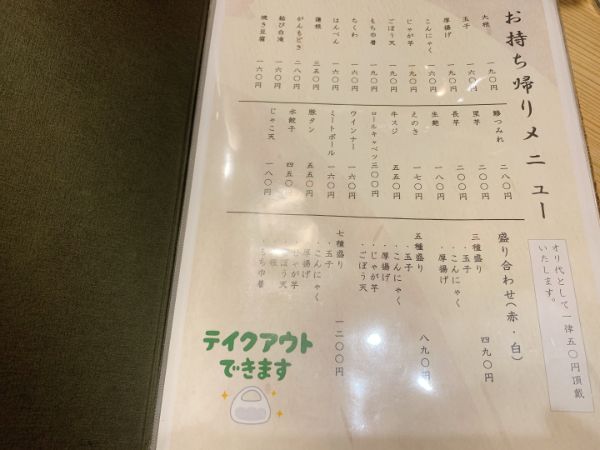 お持ち帰りメニュー
オリ代として一律五〇円頂戴
いたします。
大根 一九〇円
玉子 一六〇円
厚揚げ 一九〇円
こんにゃく 一六〇円
じゃが芋 一九〇円
ごぼう天 一九〇円
もち巾着 一九〇円
ちくわ 一六〇円
はんぺん 一六〇円
蓮根 三五〇円
がんもどき 二八〇円
結び白滝 一六〇円
焼き豆腐 一六〇円
鯵つみれ 二八〇円
里芋 二〇〇円
長芋 二〇〇円
生麩 一八〇円
えのき 一七〇円
牛スジ 五五〇円
ロールキャベツ 三〇〇円
ウインナー 一六〇円
ミートボール 一六〇円
豚タン 五五〇円
水餃子 四五〇円
じゃこ天 一八〇円
盛り合わせ(赤・白)
三種盛り 四九〇円
・玉子
・こんにゃく
・厚揚げ
五種盛り 八九〇円
・玉子
・こんにゃく
・厚揚げ
・じゃが芋
・ごぼう天
七種盛り 一二〇〇円
・玉子
・こんにゃく
・厚揚げ
・じゃが芋
・ごぼう天
・もち巾着
テイクアウト
できます